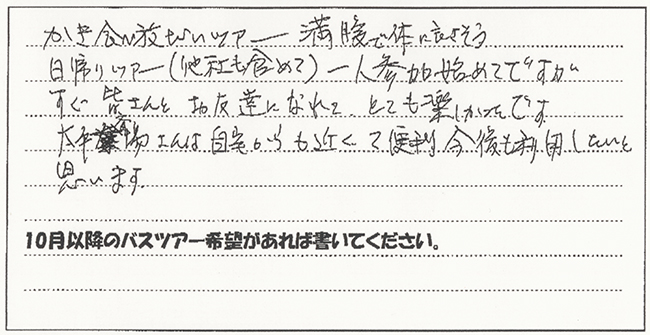 かき食べ放だいツアー 満腹で体に良さそう
日帰りツアー(他社も含めて)一人参加始めてですが
すぐ皆さんとお友達になれて、とても楽しかったです
太平観光さんは自宅からも近くて便利 今後も利用したいと
思います。
10月以降のバスツアー希望があれば書いてください。